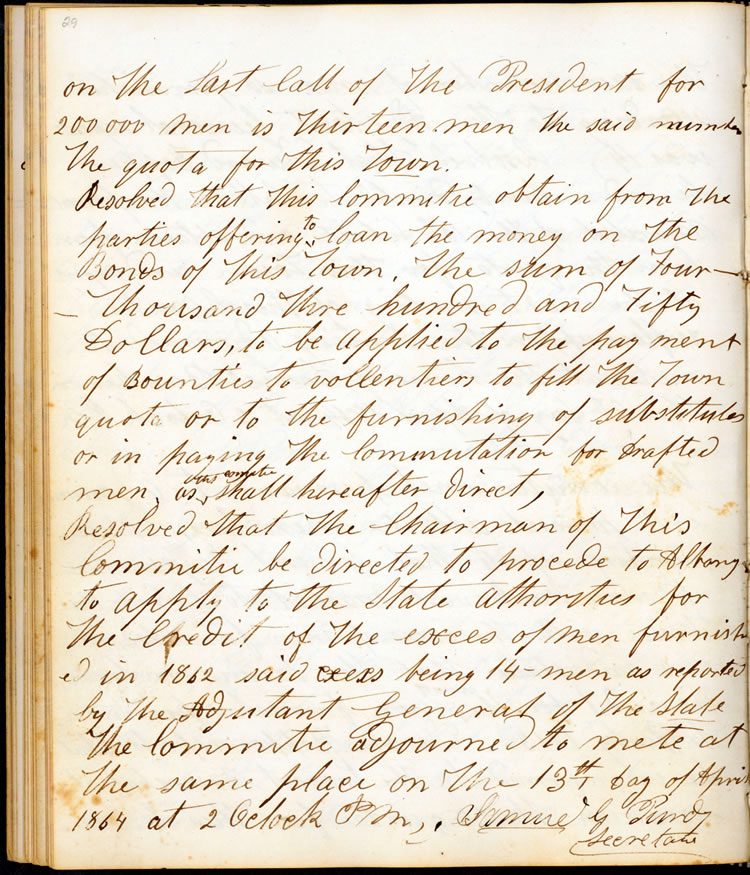 29
on the Last Call of the President for
200000 men is thirteen men the said number
the quota for this Town.
Resolved that this Committie obtain from the
parties offering to loan the money on the
Bonds of this Town, the sum of Four—
— thousand thre hundred and Fifty
Dollars, to be applied to the payment
of Bounties to vollentiers to fill the Town
quota or to the furnishing of substitutes
or in paying the Commutation for drafted
men, as this comitie shall hereafter direct,
Resolved that the Chairman of this
Committie be directed to procede to Albany
to apply to the State athorities for
the Credit of the exces of men furnish
ed in 1862 said exces being 14 men as reported
by the Adjutant General of the State
the Committie adjourned to mete at
the same place on the 13th day of April
1864 at 2 Oclock PM,. Samuel G Purdy
Secretary